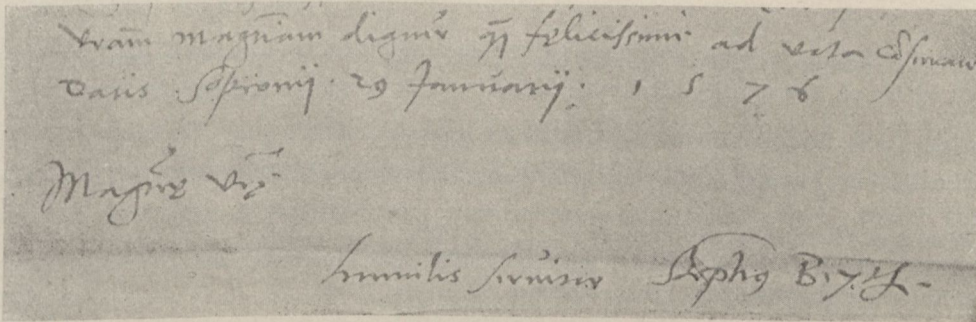 vram magniam dignetr qz felicissime ad vota Conseruare
Datis Sopronij · 29 Januarij : 1 5 7 6
Magtie vre
humilis seruitor Stephus